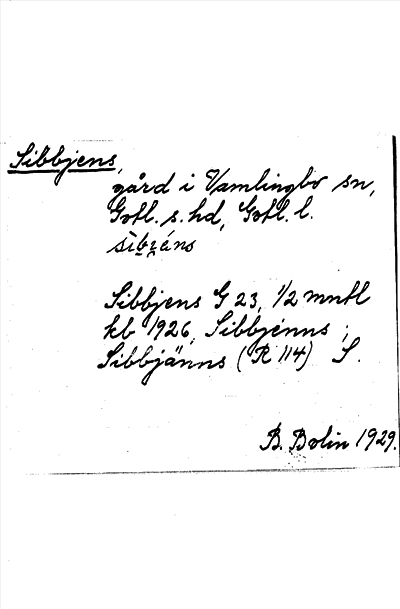 Sibbjens,
gård i Vamlingbo sn,
Gotl. s. hd, Gotl. l.
Sibbjens G 23, 1/2 mntl
kb 1926, Sibbjenns ;
Sibbjänns (R 114) S.
B. Bolin 1929.